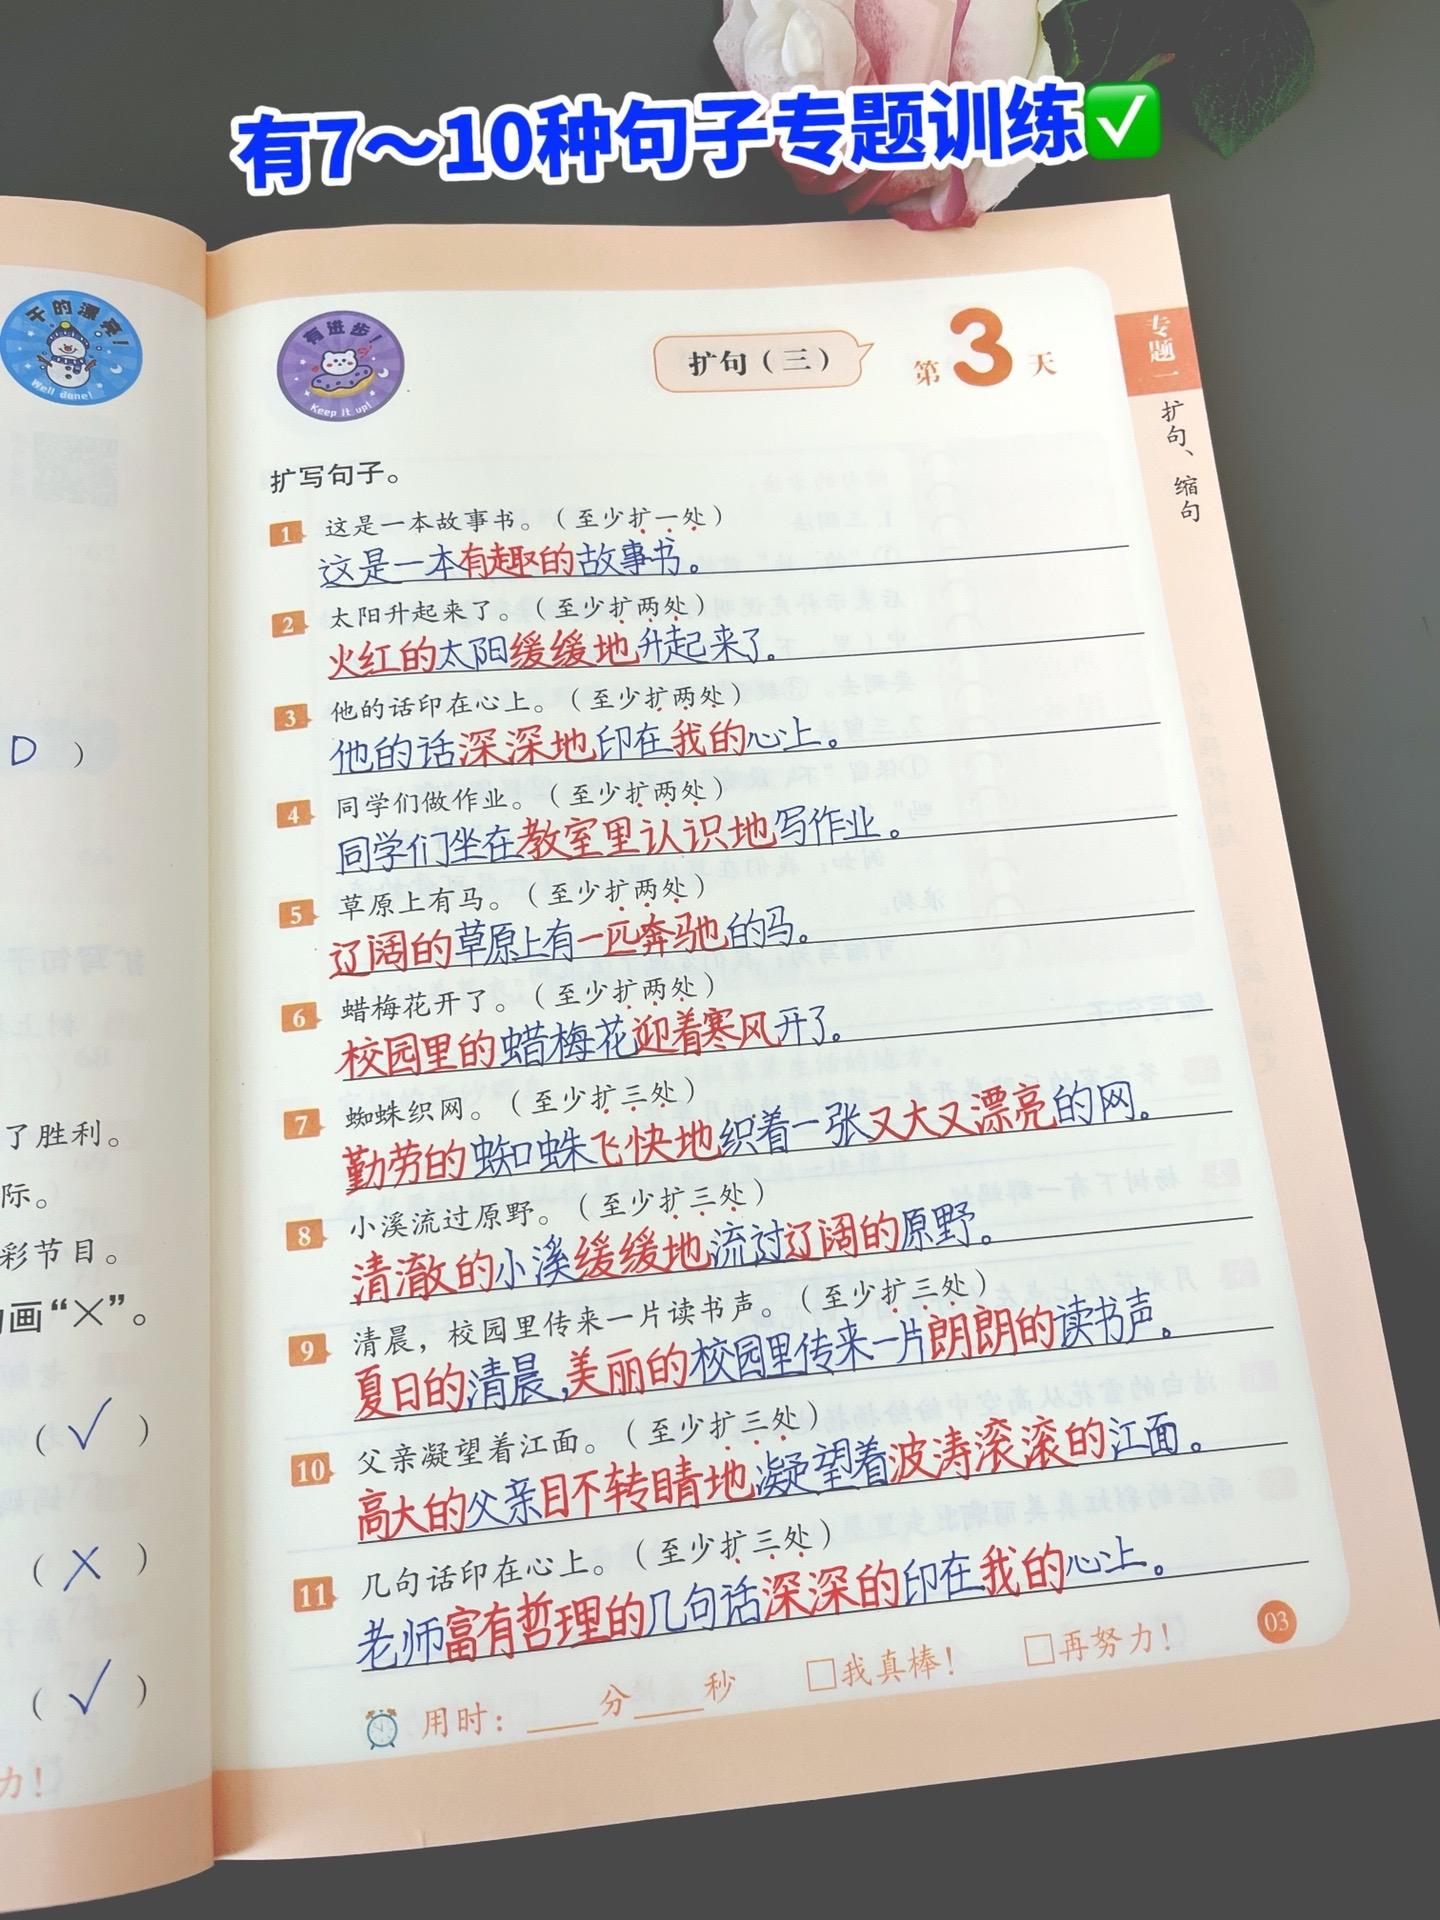 有7~10种句子专题训练✅
干的漂亮!
Well done!
有进步!
Keep it up!
扩句(三)
第3天
专题一
扩句、缩句
扩写句子。
1 这是一本故事书。(至少扩一处)
这是一本有趣的故事书。
2 太阳升起来了。(至少扩两处)
火红的太阳缓缓地升起来了。
3 他的话印在心上。(至少扩两处)
他的话深深地印在我的心上。
4 同学们做作业。(至少扩两处)
同学们坐在教室里认识地写作业。
5 草原上有马。(至少扩两处)
辽阔的草原上有一匹奔驰的马。
6 蜡梅花开了。(至少扩两处)
校园里的蜡梅花迎着寒风开了。
7 蜘蛛织网。(至少扩三处)
勤劳的蜘蛛飞快地织着一张又大又漂亮的网。
8 小溪流过原野。(至少扩三处)
清澈的小溪缓缓地流过辽阔的原野。
9 清晨，校园里传来一片读书声。(至少扩三处)
夏日的清晨,美丽的校园里传来一片朗朗的读书声。
10 父亲凝望着江面。(至少扩三处)
高大的父亲目不转睛地凝望着波涛滚滚的江面。
11 几句话印在心上。(至少扩三处)
老师富有哲理的几句话深深的印在我的心上。
用时：____分____秒 □我真棒! □再努力!
03
D )
了胜利。
际。
彩节目。
画“×”。
(✓)
(×)
(✓)
力!